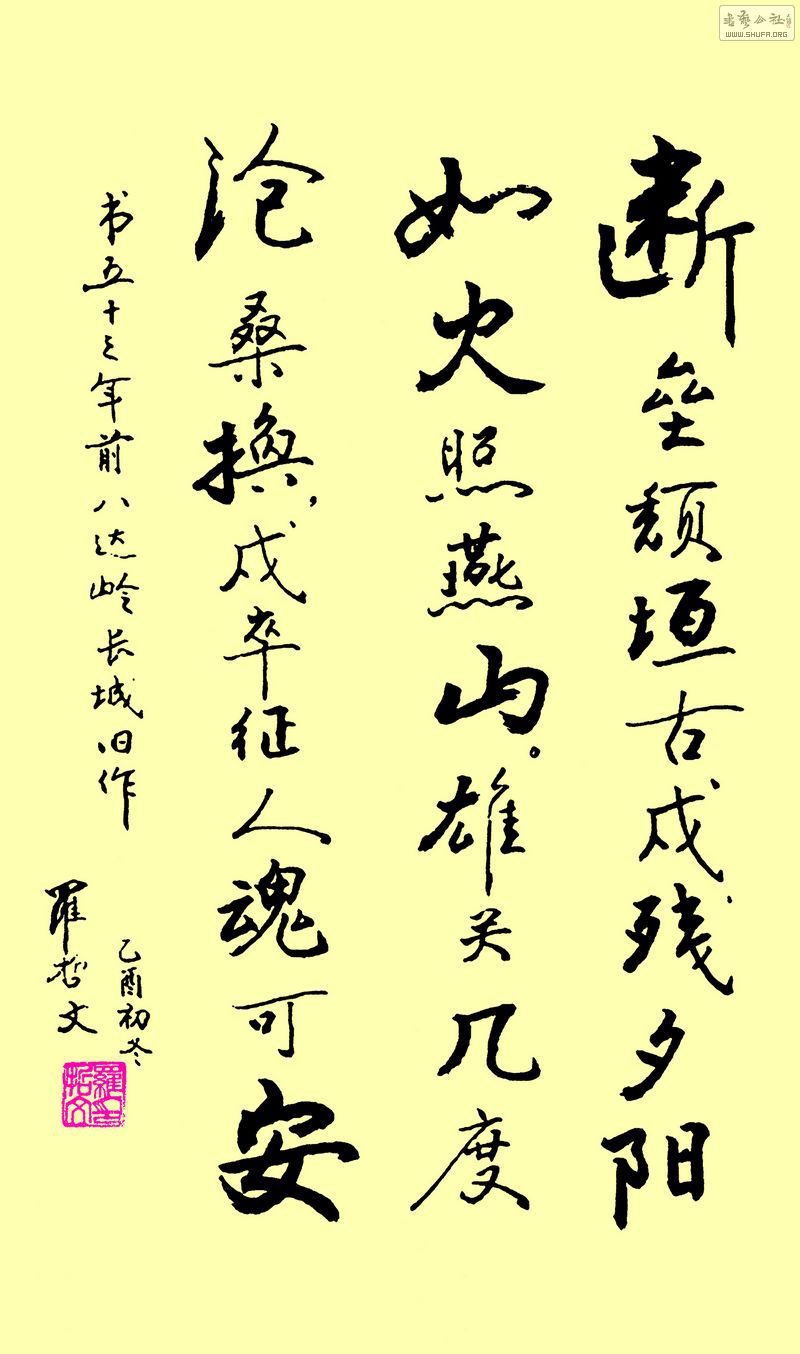 断垒颓垣古戍残夕阳
如火照燕山。雄关几度
沧桑换，戍卒征人魂可安
书五十三年前八达岭长城旧作
乙酉初冬
罗哲文
羅哲文
书艺公社
WWW.SHUFA.ORG